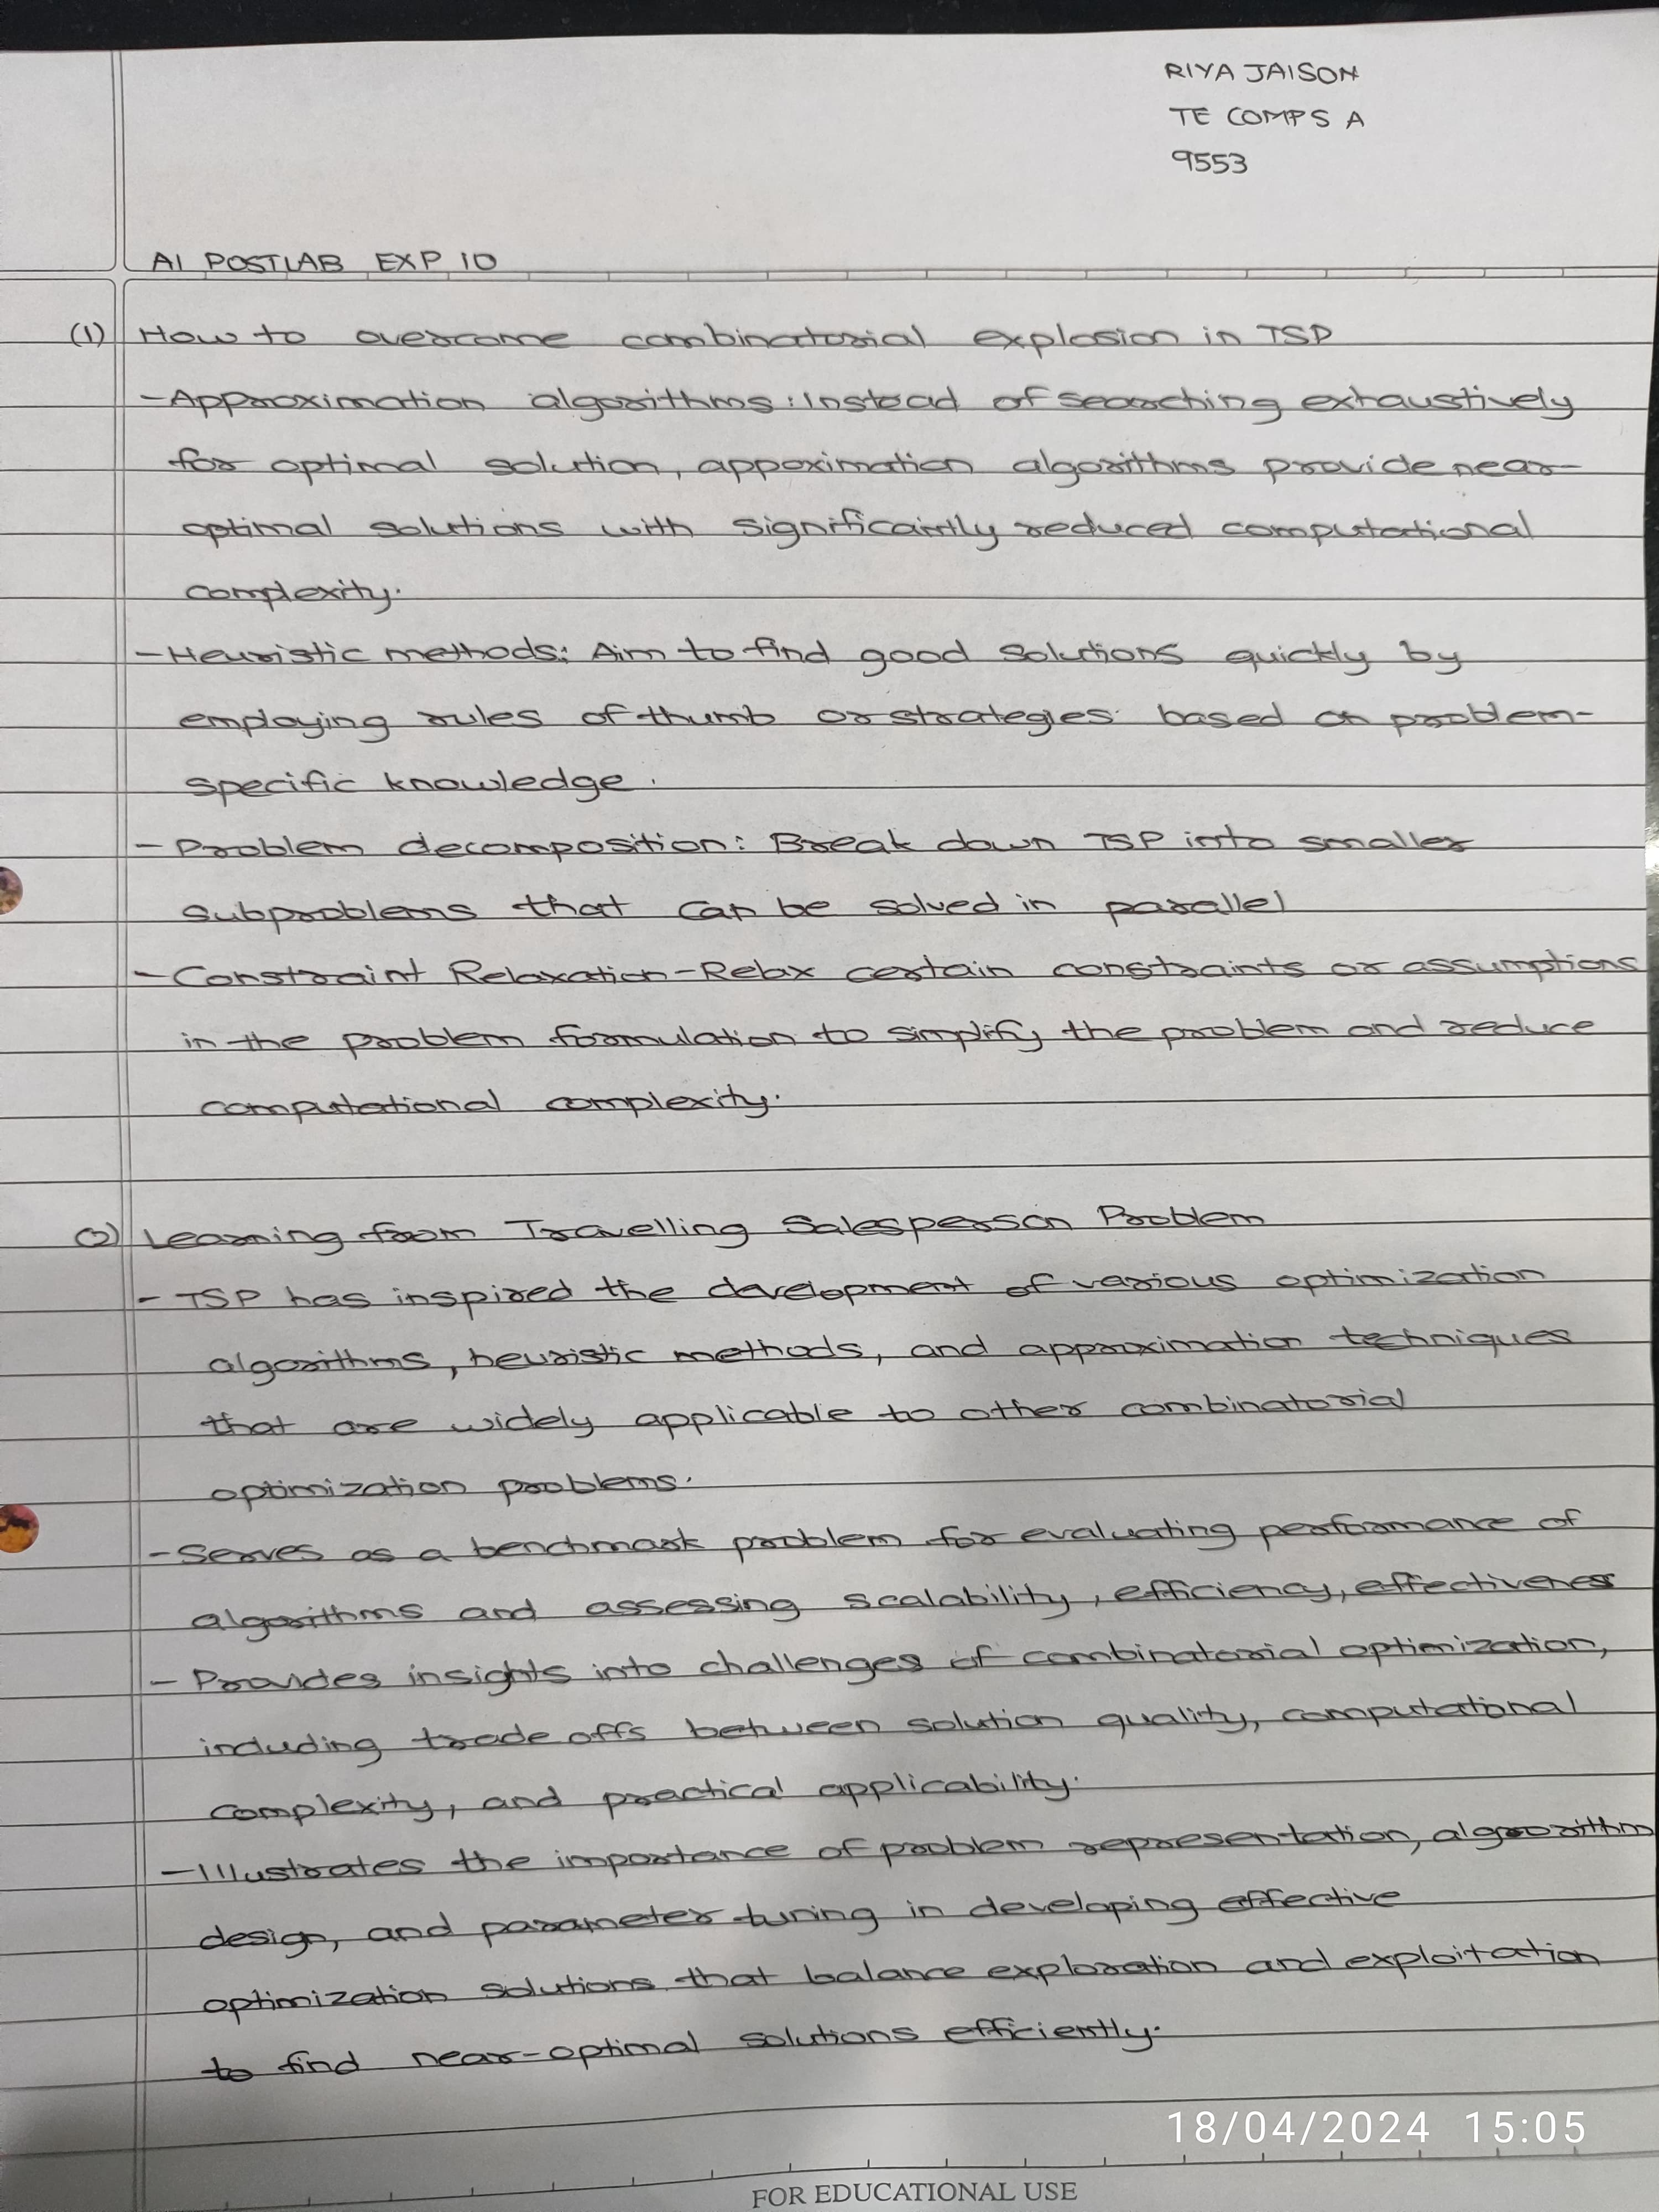 RIYA JAISON
TE COMPS A
9553
AI POSTLAB EXP 10
(1) How to overcome combinatorial explosion in TSP
- Approximation algorithms: Instead of searching exhaustively
for optimal solution, appoximation algorithms provide near-
optimal solutions with significantly reduced computational
complexity.
- Heuristic methods: Aim to find good solutions quickly by
employing rules of thumb or strategies based on problem-
specific knowledge.
- Problem decomposition: Break down TSP into smaller
subproblems that can be solved in parallel
- Constraint Relaxation - Relax certain constraints or assumptions
in the problem formulation to simplify the problem and reduce
computational complexity.
(2) Learning from Travelling Salesperson Problem
- TSP has inspired the development of various optimization
algorithms, heuristic methods, and approximation techniques
that are widely applicable to other combinatorial
optimization problems.
- Serves as a benchmark problem for evaluating performance of
algorithms and assessing scalability, efficiency, effectiveness
- Provides insights into challenges of combinatorial optimization,
including trade offs between solution quality, computational
complexity, and practical applicability.
- Illustrates the importance of problem representation, algorithm
design, and parameter tuning in developing effective
optimization solutions that balance exploration and exploitation
to find near-optimal solutions efficiently.
18/04/2024 15:05
FOR EDUCATIONAL USE